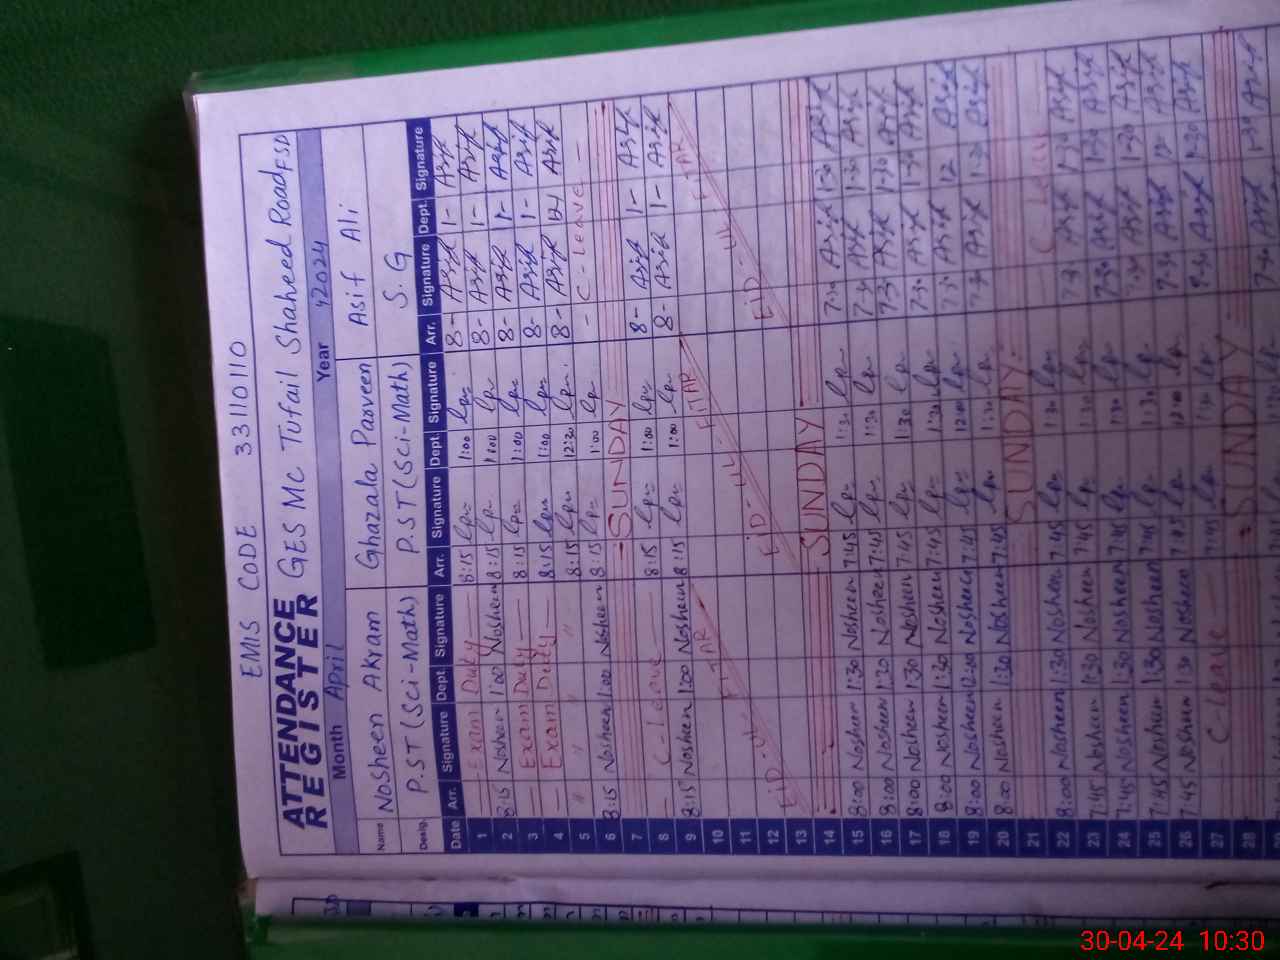 EMIS CODE 33110110
ATTENDANCE REGISTER GES MC Tufail Shaheed Road FSD
Month April Year 42024
Name Nosheen Akram Ghazala Parveen Asif Ali
Desig. P.ST (Sci-Math) P.ST (Sci-Math) S.G
Date Arr. Signature Dept. Signature Arr. Signature Dept. Signature Arr. Signature Dept. Signature
1 Exam Duty 8:15 1:00 8- Asif 1- Asif
2 8:15 Nosheen 1:00 Nosheen 8:15 1:00 8- Asif 1- Asif
3 Exam Duty 8:15 1:00 8- Asif 1- Asif
4 Exam Duty 8:15 1:00 8- Asif 1- Asif
5 " " " " 8:15 12:30 8- Asif Asif
6 8:15 Nosheen 1:00 Nosheen 8:15 1:00 - C-Leave -
7 SUNDAY
8 - C-Leave - 8:15 1:00 8- Asif 1- Asif
9 8:15 Nosheen 1:00 Nosheen 8:15 1:00 8- Asif 1- Asif
10
11
12
13
EID-UL-FITAR EID-UL-FITAR EID-UL-FITAR
14 SUNDAY
15 8:00 Nosheen 1:30 Nosheen 7:45 1:30 7:30 Asif 1:30 Asif
16 8:00 Nosheen 1:30 Nosheen 7:45 1:30 7:30 Asif 1:30 Asif
17 8:00 Nosheen 1:30 Nosheen 7:45 1:30 7:30 Asif 1:30 Asif
18 8:00 Nosheen 1:30 Nosheen 7:45 1:30 7:30 Asif 1:30 Asif
19 8:00 Nosheen 12:00 Nosheen 7:45 12:00 7:30 Asif 12 Asif
20 8:00 Nosheen 1:30 Nosheen 7:45 1:30 7:30 Asif 1:30 Asif
21 SUNDAY C Leave
22 8:00 Nosheen 1:30 Nosheen 7:45 1:30 7:30 Asif 1:30 Asif
23 7:45 Nosheen 1:30 Nosheen 7:45 1:30 7:30 Asif 1:30 Asif
24 7:45 Nosheen 1:30 Nosheen 7:45 1:30 7:30 Asif 1:30 Asif
25 7:45 Nosheen 1:30 Nosheen 7:45 1:30 7:30 Asif 12 Asif
26 7:45 Nosheen 1:30 Nosheen 7:45 12:00 7:30 Asif 1:30 Asif
27 C-Leave 7:45 1:30
28 SUNDAY 7:30 Asif 1:30 Asif
30-04-24 10:30